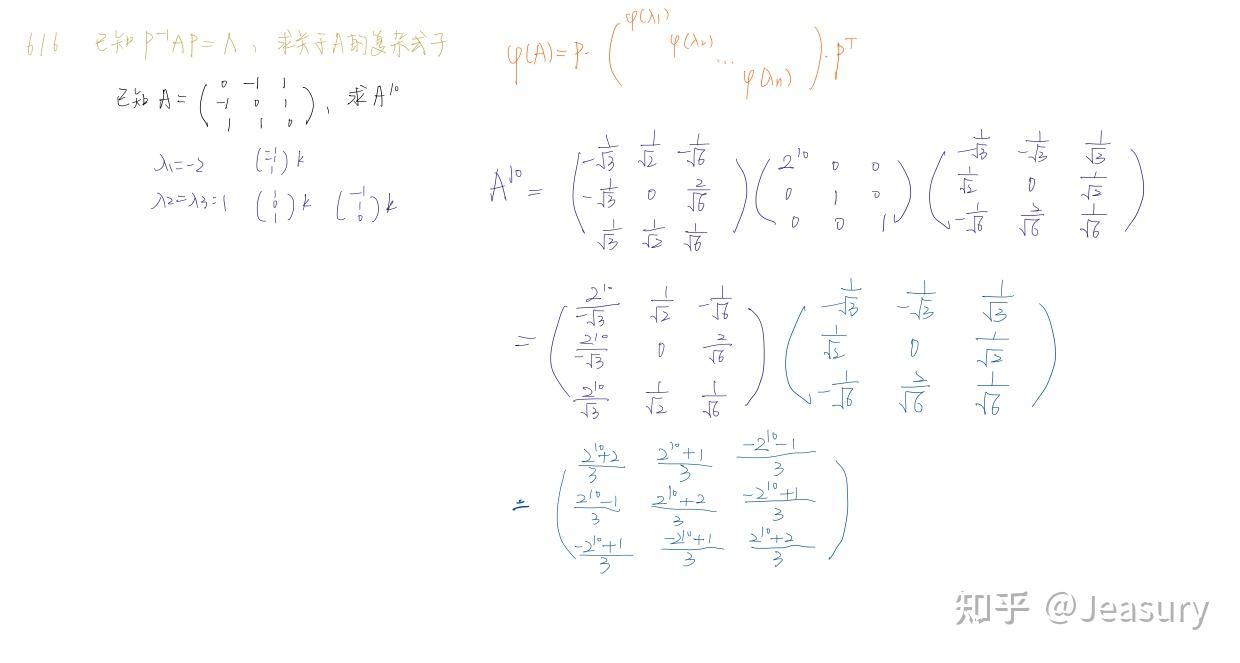 616 已知 P⁻¹AP=Λ, 求关于A的复杂式子
φ(A)=P·(φ(λ₁) φ(λ₂) ... φ(λn))·Pᵀ
已知 A=
0 -1 1
-1 0 1
1 1 0
, 求A¹⁰
λ₁=-2 (-1 -1 1) k
λ₂=λ₃=1 (1 0 1) k (-1 1 0) k
A¹⁰ =
-1/√3 1/√2 -1/√6
-1/√3 0 2/√6
1/√3 1/√2 1/√6
2¹⁰ 0 0
0 1 0
0 0 1
-1/√3 -1/√3 1/√3
1/√2 0 1/√2
-1/√6 2/√6 1/√6
=
2¹⁰/-√3 1/√2 -1/√6
2¹⁰/-√3 0 2/√6
2¹⁰/√3 1/√2 1/√6
-1/√3 -1/√3 1/√3
1/√2 0 1/√2
-1/√6 2/√6 1/√6
=
2¹⁰+2/3 2¹⁰+1/3 -2¹⁰-1/3
2¹⁰-1/3 2¹⁰+2/3 -2¹⁰+1/3
-2¹⁰+1/3 -2¹⁰+1/3 2¹⁰+2/3
知乎 @Jeasury